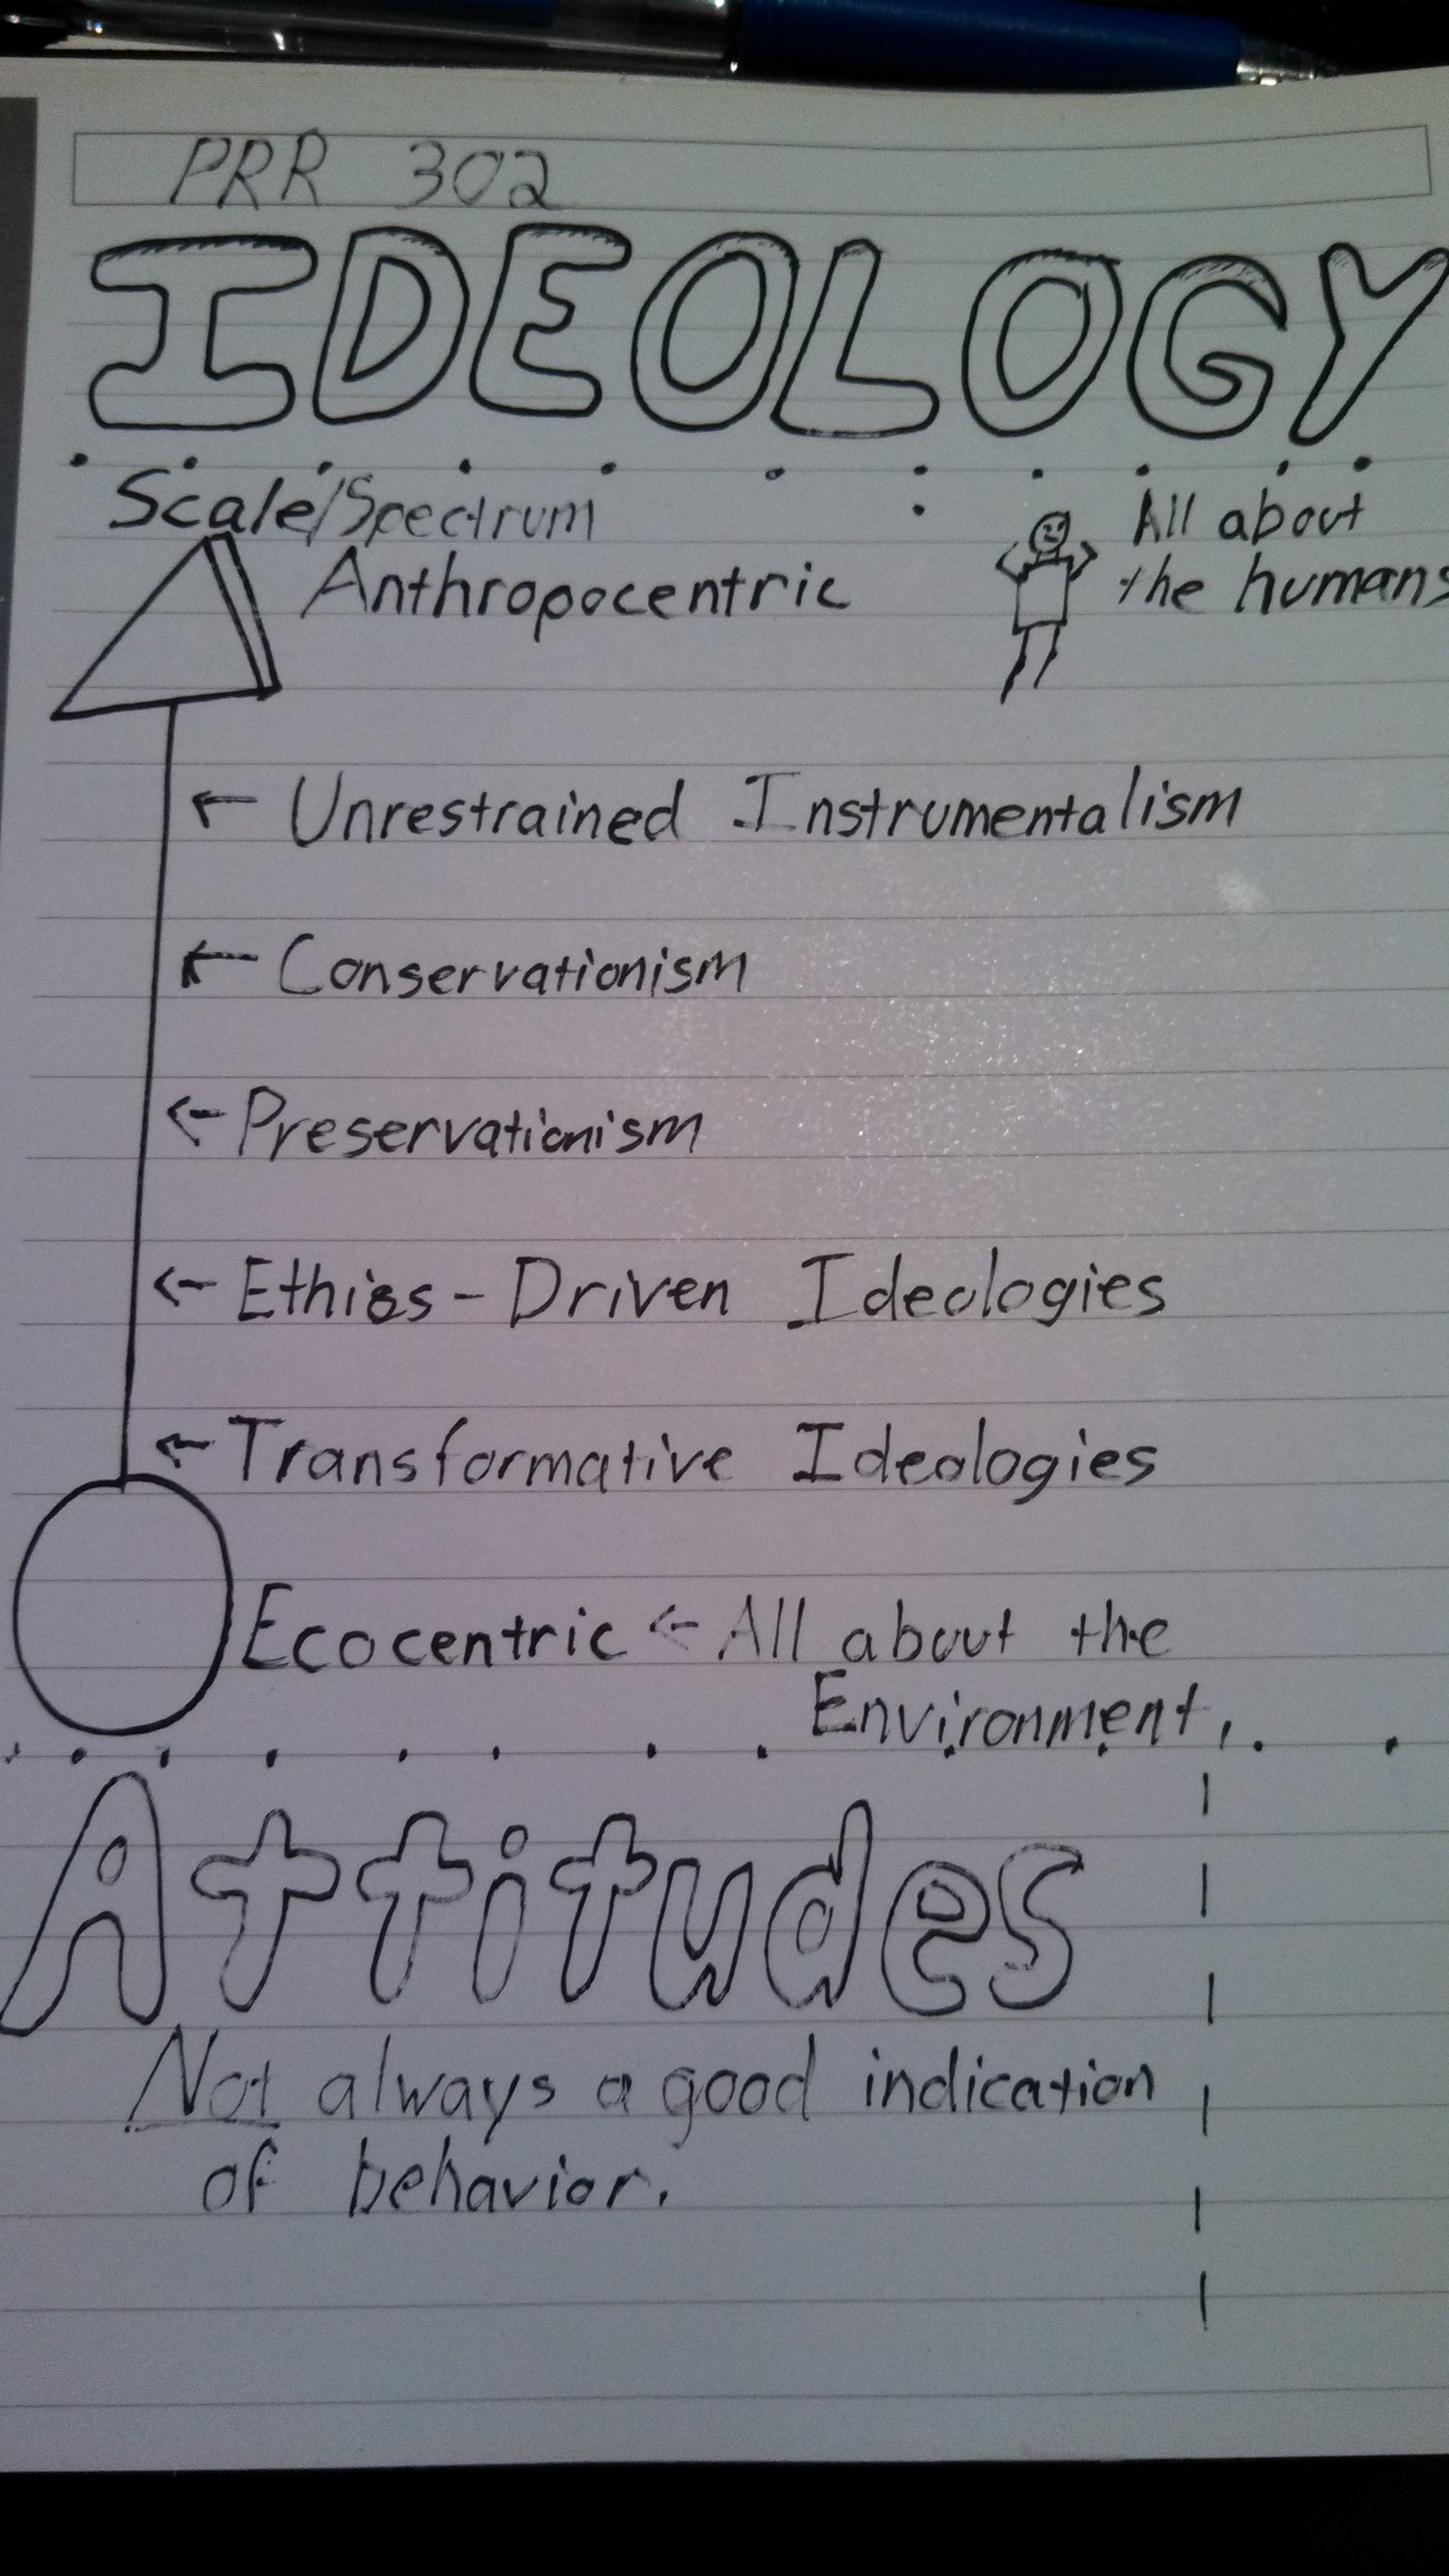 PRR 302
IDEOLOGY
Scale/Spectrum
Anthropocentric
All about
the humans
← Unrestrained Instrumentalism
← Conservationism
← Preservationism
← Ethics - Driven Ideologies
← Transformative Ideologies
Ecocentric ← All about the
Environment.
Attitudes
Not always a good indication
of behavior.